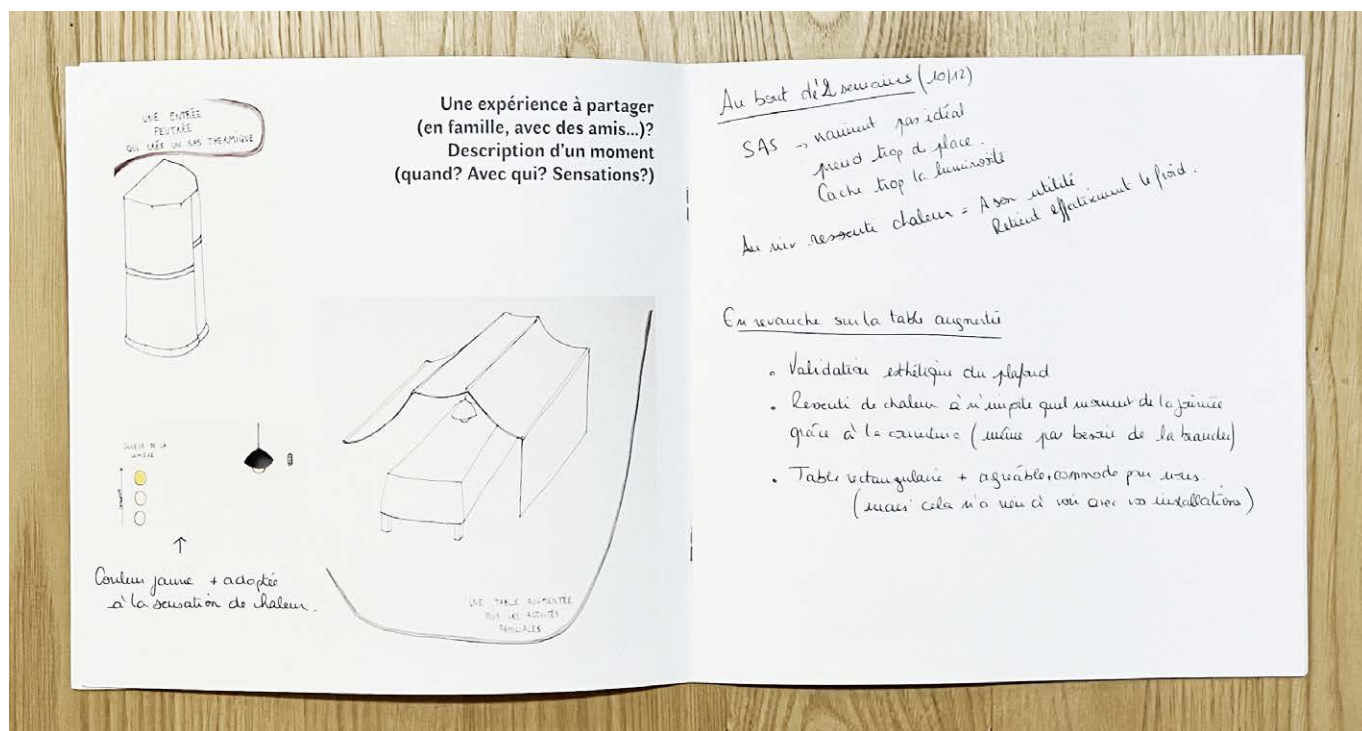 UNE ENTRÉE
FEUTRÉE
QUI CRÉE UN SAS THERMIQUE
Une expérience à partager
(en famille, avec des amis...)?
Description d'un moment
(quand? Avec qui? Sensations?)
COULEUR DE LA
LUMIÈRE
Couleur jaune + adaptée
à la sensation de chaleur.
UNE TABLE AUGMENTÉE
POUR LES ACTIVITÉS
FAMILIALES
Au bout de 2 semaines (10/12)
SAS → vraiment pas idéal
prend trop de place.
Cache trop la luminosité
Au niv ressenti chaleur = A son utilité
Retient effectivement le froid.
En revanche sur la table augmentée
• Validation esthétique du plafond
• Ressenti de chaleur à n'importe quel moment de la journée
grâce à la couverture (même pas besoin de la brancher)
• Table rectangulaire + agréable, commode pour nous.
(mais cela n'a rien à voir avec vos installations)